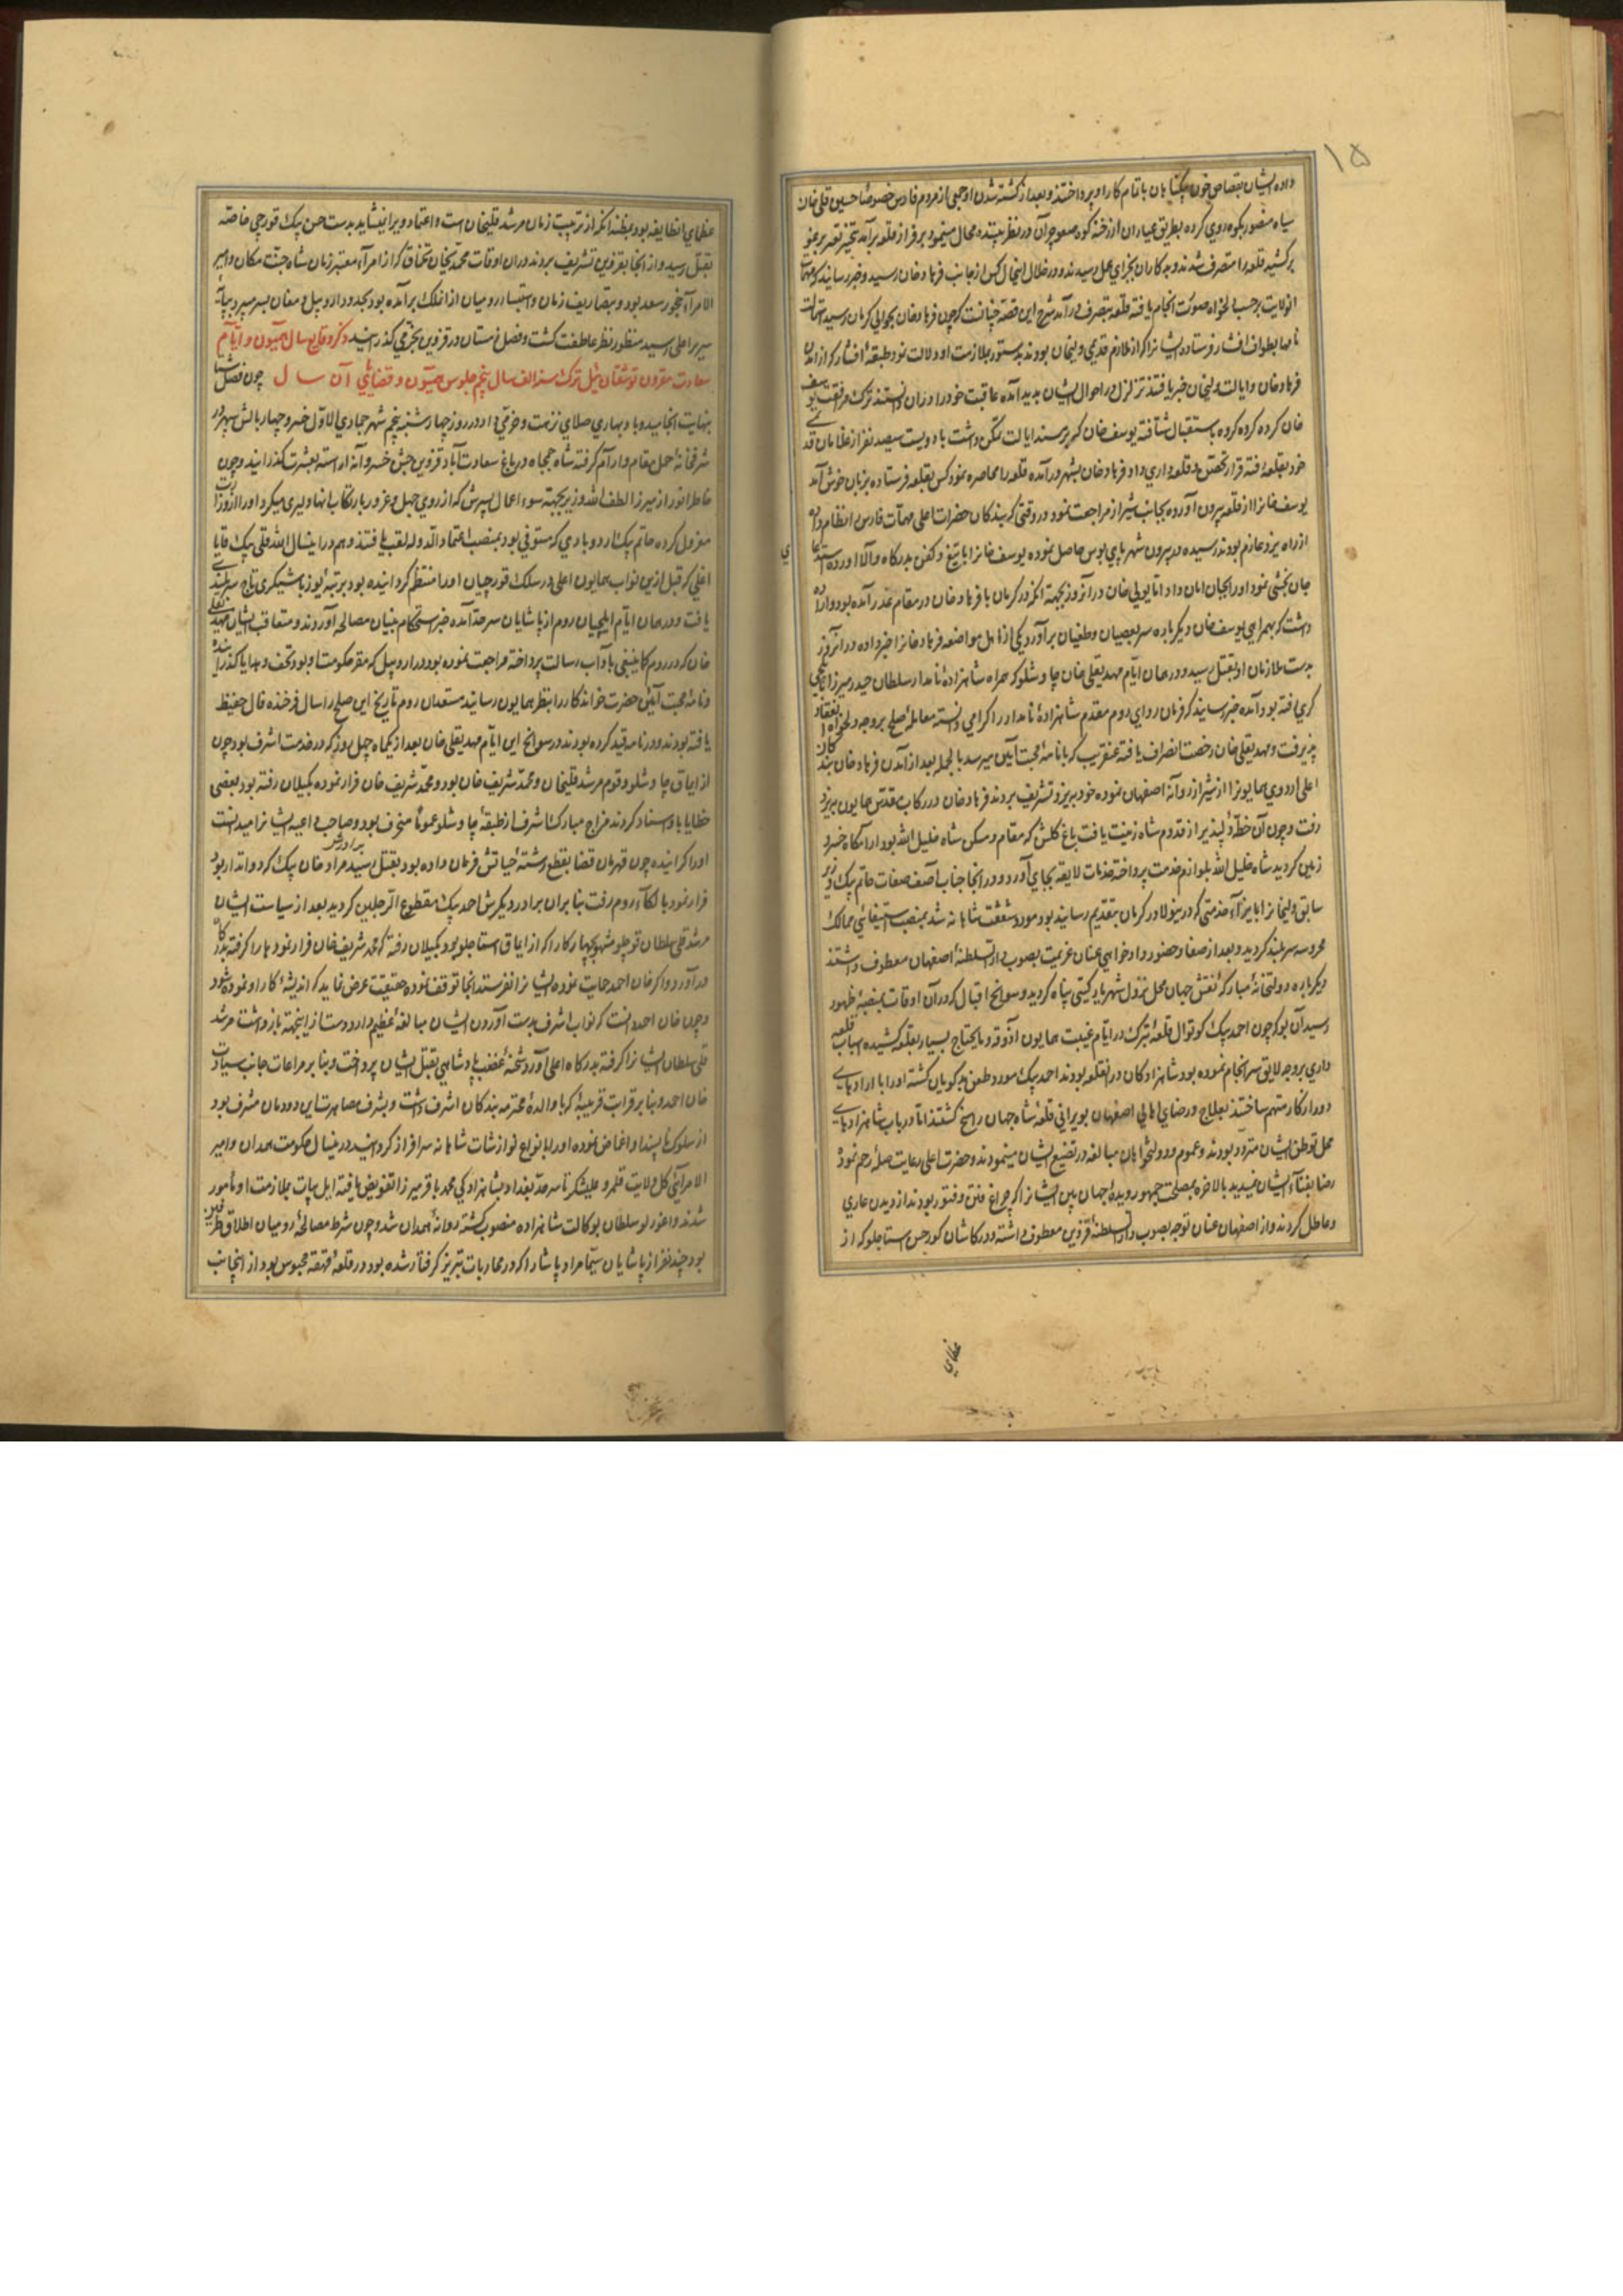 ۱۵
داده ایشان بقصاص خون یکتا بان باتمام کار او پرداختند و بعد از کشته شدن او جمعی از مردم فارس خصوصا حسین قلی خان
سیاه منصور بکوه روی کرده بطریق عیاران از رخنه کوه صعود بر آن در نظر بیننده محال مینمود بر فراز قلعه برآمد
برکشید قلعه را متصرف شدند و بدکاران بجزای عمل رسیدند و در خلال اینحال کس از جانب فرهاد خان رسید و خبر رسانید که مهمات
انولایت بر حسب دلخواه صورت انجام یافته قلعه بتصرف درآمد شرح این قصه چنانست که چون فرهاد خان بحوالی کرمان رسید استمالت
نامها بطوائف افشار فرستاده ایشانرا که از ملازم قدیمی ولیخان بودند بدستور بملازمت او دلالت نمود طبقه افشار که از آمدن
فرهاد خان و ایالت ولیخان خبر یافتند تزلزل در احوال ایشان پدید آمده عاقبت خود را در آن دانستند ترک مرافقت یوسف
خان کرده کروه کروه باستقبال شتافته یوسف خان که بر مسند ایالت تمکن داشت با دویست سیصد نفر از غلامان قدیمی
خود بقلعه رفته قرار تحصن و قلعه داری داد فرهاد خان بشهر درآمده قلعه را محاصره نمود کس بقلعه فرستاده بزبان خوش آمد
یوسف خانرا از قلعه بیرون آورده بجانب شیراز مراجعت نمود در وقتی که بندکان حضرت اعلی مهمات فارس انتظام داده
از راه یزد عازم بودند رسیده در بیرون شهر پای بوس حاصل نموده یوسف خانرا با تیغ و کفن بدرکاه والا آورده استدعای
جان بخشی نمود او را بجان امان داد اما یولی خان در آنروز بجهة انکه در کرمان با فرهاد خان در مقام غدر آمده بود و اراده
داشت که بهمراهی یوسف خان دیکر باره سر بعصیان و طغیان برآورد یکی از اهل مواضعه فرهاد خانرا خبر داده در آنروز
بدست ملازمان او بقتل رسید و در همان ایام مهدیقلی خان چاوشلو که همراه شاهزاده نامدار سلطان حیدر میرزا بایلچی
کری رفته بود آمده خبر رسانید که فرمان روای روم مقدم شاهزاده نامدار را کرامی دانسته معامله صلح بر وجه دلخواه انعقاد
پذیرفت و مهدیقلی خان رخصت انصراف یافته عنقریب که با نامه محبت آیین میرسد بالجمله بعد از آمدن فرهاد خان بندکان
اعلی اردوی همایونرا از شیراز روانه اصفهان نموده خود بیزد تشریف بردند فرهاد خان در رکاب مقدس همایون بیزد
رفت و چون آن خطه دلپذیر از قدوم شاه زینت یافت باغ کلشن که مقام و مسکن شاه خلیل الله بود آرامکاه خسرو
زمین کردید شاه خلیل الله بلوازم خدمت پرداخته خدمات لایقه بجای آورد و در انجا جناب آصف صفات حاتم بیک وزیر
سابق ولیخانرا بجزاء خدمتی که در کرمان بتقدیم رسانید بود مورد شفقت شاهانه شد بمنصب استیفای ممالک
محروسه سربلند کردید و بعد از صفا و حضور و داد خواهی عنان عزیمت بصوب دار السلطنه اصفهان معطوف داشتند
دیکر باره دولتخانه مبارکه نقش جهان محل نزول شهریار کیتی پناه کردید و سوانح اقبال که در آن اوقات بمنصه ظهور
رسید آن بود که چون احمد بیک کوتوال قلعه تبرک در ایام غیبت همایون آذوقه و مایحتاج بسیار بقلعه کشیده اسباب قلعه
داری بر وجه لایق سرانجام نموده بود شاهزادکان در انقلعه بودند احمد بیک مورد طعن بدکویان کشته او را با اراده های
دور از کار متهم ساختند بعلاج و رضای اهالی اصفهان بویرانی قلعه شاه جهان راسخ کشتند اما در باب شاهزادهای
محل توطن ایشان متردد بودند و عموم دولتخواهان مبالغه در تضییع ایشان مینمودند و حضرت اعلی رعایت صله رحم نموده
رضا بفناء ایشان نمیدید بالاخره بمصلحت جمهور دیده جهان بین ایشانرا که چراغ فتن و فتور بودند از دیدن عاری
و عاطل کردند و از اصفهان عنان توجه بصوب دار السلطنه قزوین معطوف داشته و در کاشان کور حسن استاجلو که از
عظمای
عظمای انطایفه بود بمظنه انکه از تربیت زمان مرشد قلیخان است و اعتماد ویرا نشاید بدست حسن بیک قورچی خاصه
بقتل رسید و از انجا بقزوین تشریف بردند در ان اوقات محمدیخان تخماق که از امرآء معتبر زمان شاه جنت مکان و امیر
الامرآء چخور سعد بود و بتصاریف زمان و استیلاء رومیان از الکا برآمده بود بحدود اردبیل و مغان بسر میبرد بپایه
سریر اعلی رسید منظور نظر عاطفت کشت و فصل زمستان در قزوین بخرمی کذرانید ذکر وقایع سال همیون و ایام
سعادت مقرون توشقان ئیل ترک سنه الف سال پنجم جلوس همیون و قضایای آن سال چون فصل شتا
بنهایت انجامید و باد بهاری صلای نزهت و خرمی داد در روز چهارشنبه پنجم شهر جمادی الاول خسرو چهار بالش سپهر در
شرفخانه حمل مقام و آرام کرفته شاه جمجاه در باغ سعادت آباد قزوین جشن خسروانه آراسته بعشرت کذرانید و چون
خاطر انور از میرزا لطف الله وزیر بجهة سوء اعمال پسرش که از روی جهل و غرور بارتکاب انها دلیری میکرد او را از وزارت
معزول کرده حاتم بیک اردوبادی که مستوفی بود بمنصب اعتماد الدوله لقب یافتند و هم در اینسال الله قلی بیک قاپا
اغلی که قبل ازین نواب همایون اعلی در سلک قورچیان او را منتظم کردانیده بود برتبه یوزباشیکری تاج سربلندی
یافت و در همان ایام ایلچیان روم از پاشایان سرحد آمده خبر استحکام بنیان مصالحه آوردند و متعاقب ایشان مهدیقلی
خان که در روم کاینبغی بآداب رسالت پرداخته مراجعت نموده بود در اردبیل که مقر حکومت او بود و تحف و هدایا کذرانیده
و نامه محبت آیین حضرت خواندکار را بنظر همایون رسانید مستعدان روم تاریخ این صلح را سال فرخنده فال حفیظ
یافته بودند و در نامه قید کرده بودند و در سوانح این ایام مهدیقلی خان بعد از یکماه چهل روز که در خدمت اشرف بود چون
از ایماق چاوشلو و قوم مرشد قلیخان و محمد شریف خان بود و محمد شریف خان فرار نموده بکیلان رفته بود بعضی
خطایا باو اسناد کردند مزاج مبارک اشرف از طبقه چاوشلو عموما منحرف بود و صاحب داعیه ایشانرا میدانست
او را کرانیده چون قهرمان قضا بقطع رشته حیاتش فرمان داده بود بقتل رسید مراد خان بیک برادرش کرد و اتدار بود
فرار نمود بالکاء روم رفت بنابران برادر دیکرش احمد بیک مقطوع الرجلین کردید بعد از سیاست ایشان
مرشد قلی سلطان قوچلو مشهور بکهنه کار را که از ایماق استاجلو بود بکیلان رفته که محمد شریف خان فرار نموده را کرفته بدرکاه
درآورد و اکر خان احمد حمایت نموده ایشانرا نفرستد انجا توقف نموده حقیقت عرض نماید که اندیشه کار او نموده شود
و چون خان احمد دانست که نواب اشرف بدست آوردن ایشان مبالغه عظیم دارد دست از اینجهة بازداشت مرشد
قلی سلطان ایشانرا کرفته بدرکاه اعلی آورد شحنه غضب پادشاهی بقتل ایشان پرداخت و بنابر مراعات جانب سیادت
خان احمد و بنابر قرابت قریبه که با والده محترمه بندکان اشرف داشت و بشرف مصاهرت این دودمان مشرف بود
از سلوک ناپسند او اغماض نموده او را بانواع نوازشات شاهانه سرافراز کردانید در اینسال حکومت همدان و امیر
الامرآئی کل ولایت قلمرو علیشکر تا سرحد بغداد بشاهزادکی محمد باقر میرزا تفویض یافته ایل بیات بملازمت او مأمور
شدند و اغورلو سلطان بوکالت شاهزاده منصوب کشته روانه همدان شد و چون شرط مصالحه رومیان اطلاق طرفین
بود چند نفر از پاشایان سیما مراد پاشا را که در محاربات تبریز کرفتار شده بود در قلعه قهقهه محبوس بود از انجانب